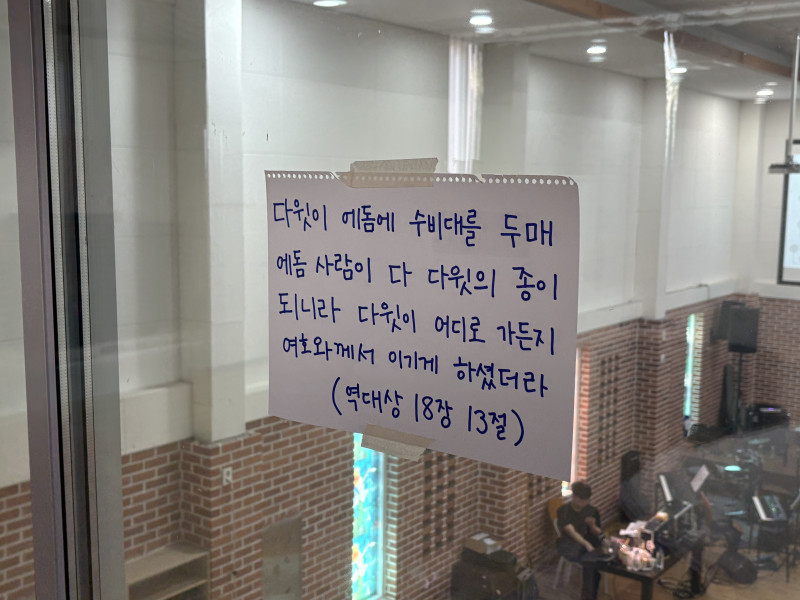 다윗이 에돔에 수비대를 두매
에돔 사람이 다 다윗의 종이
되니라 다윗이 어디로 가든지
여호와께서 이기게 하셨더라
(역대상 18장 13절)